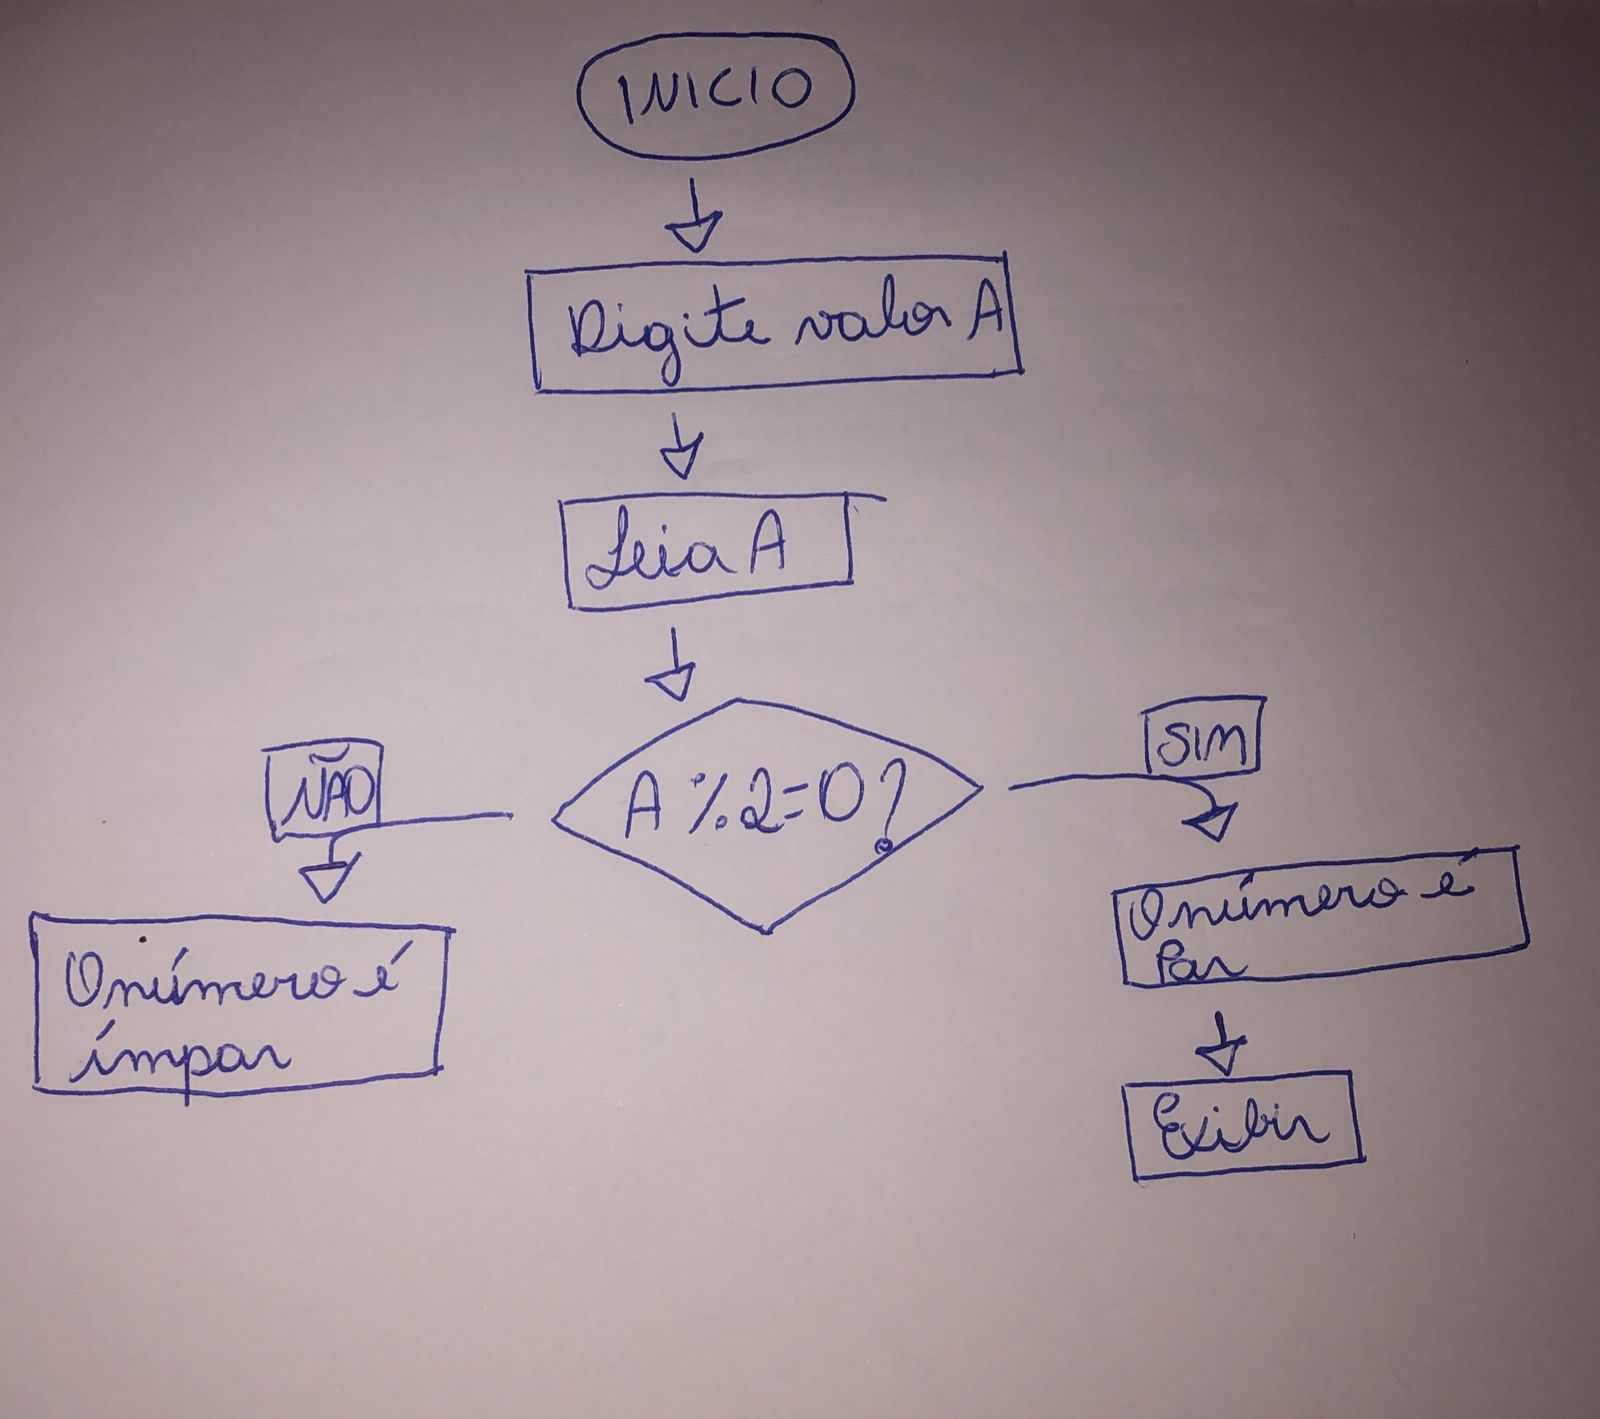 INICIO
Digite valor A
Leia A
NÃO
A % 2 = 0 ?
SIM
O número é
ímpar
O número é
Par
Exibir